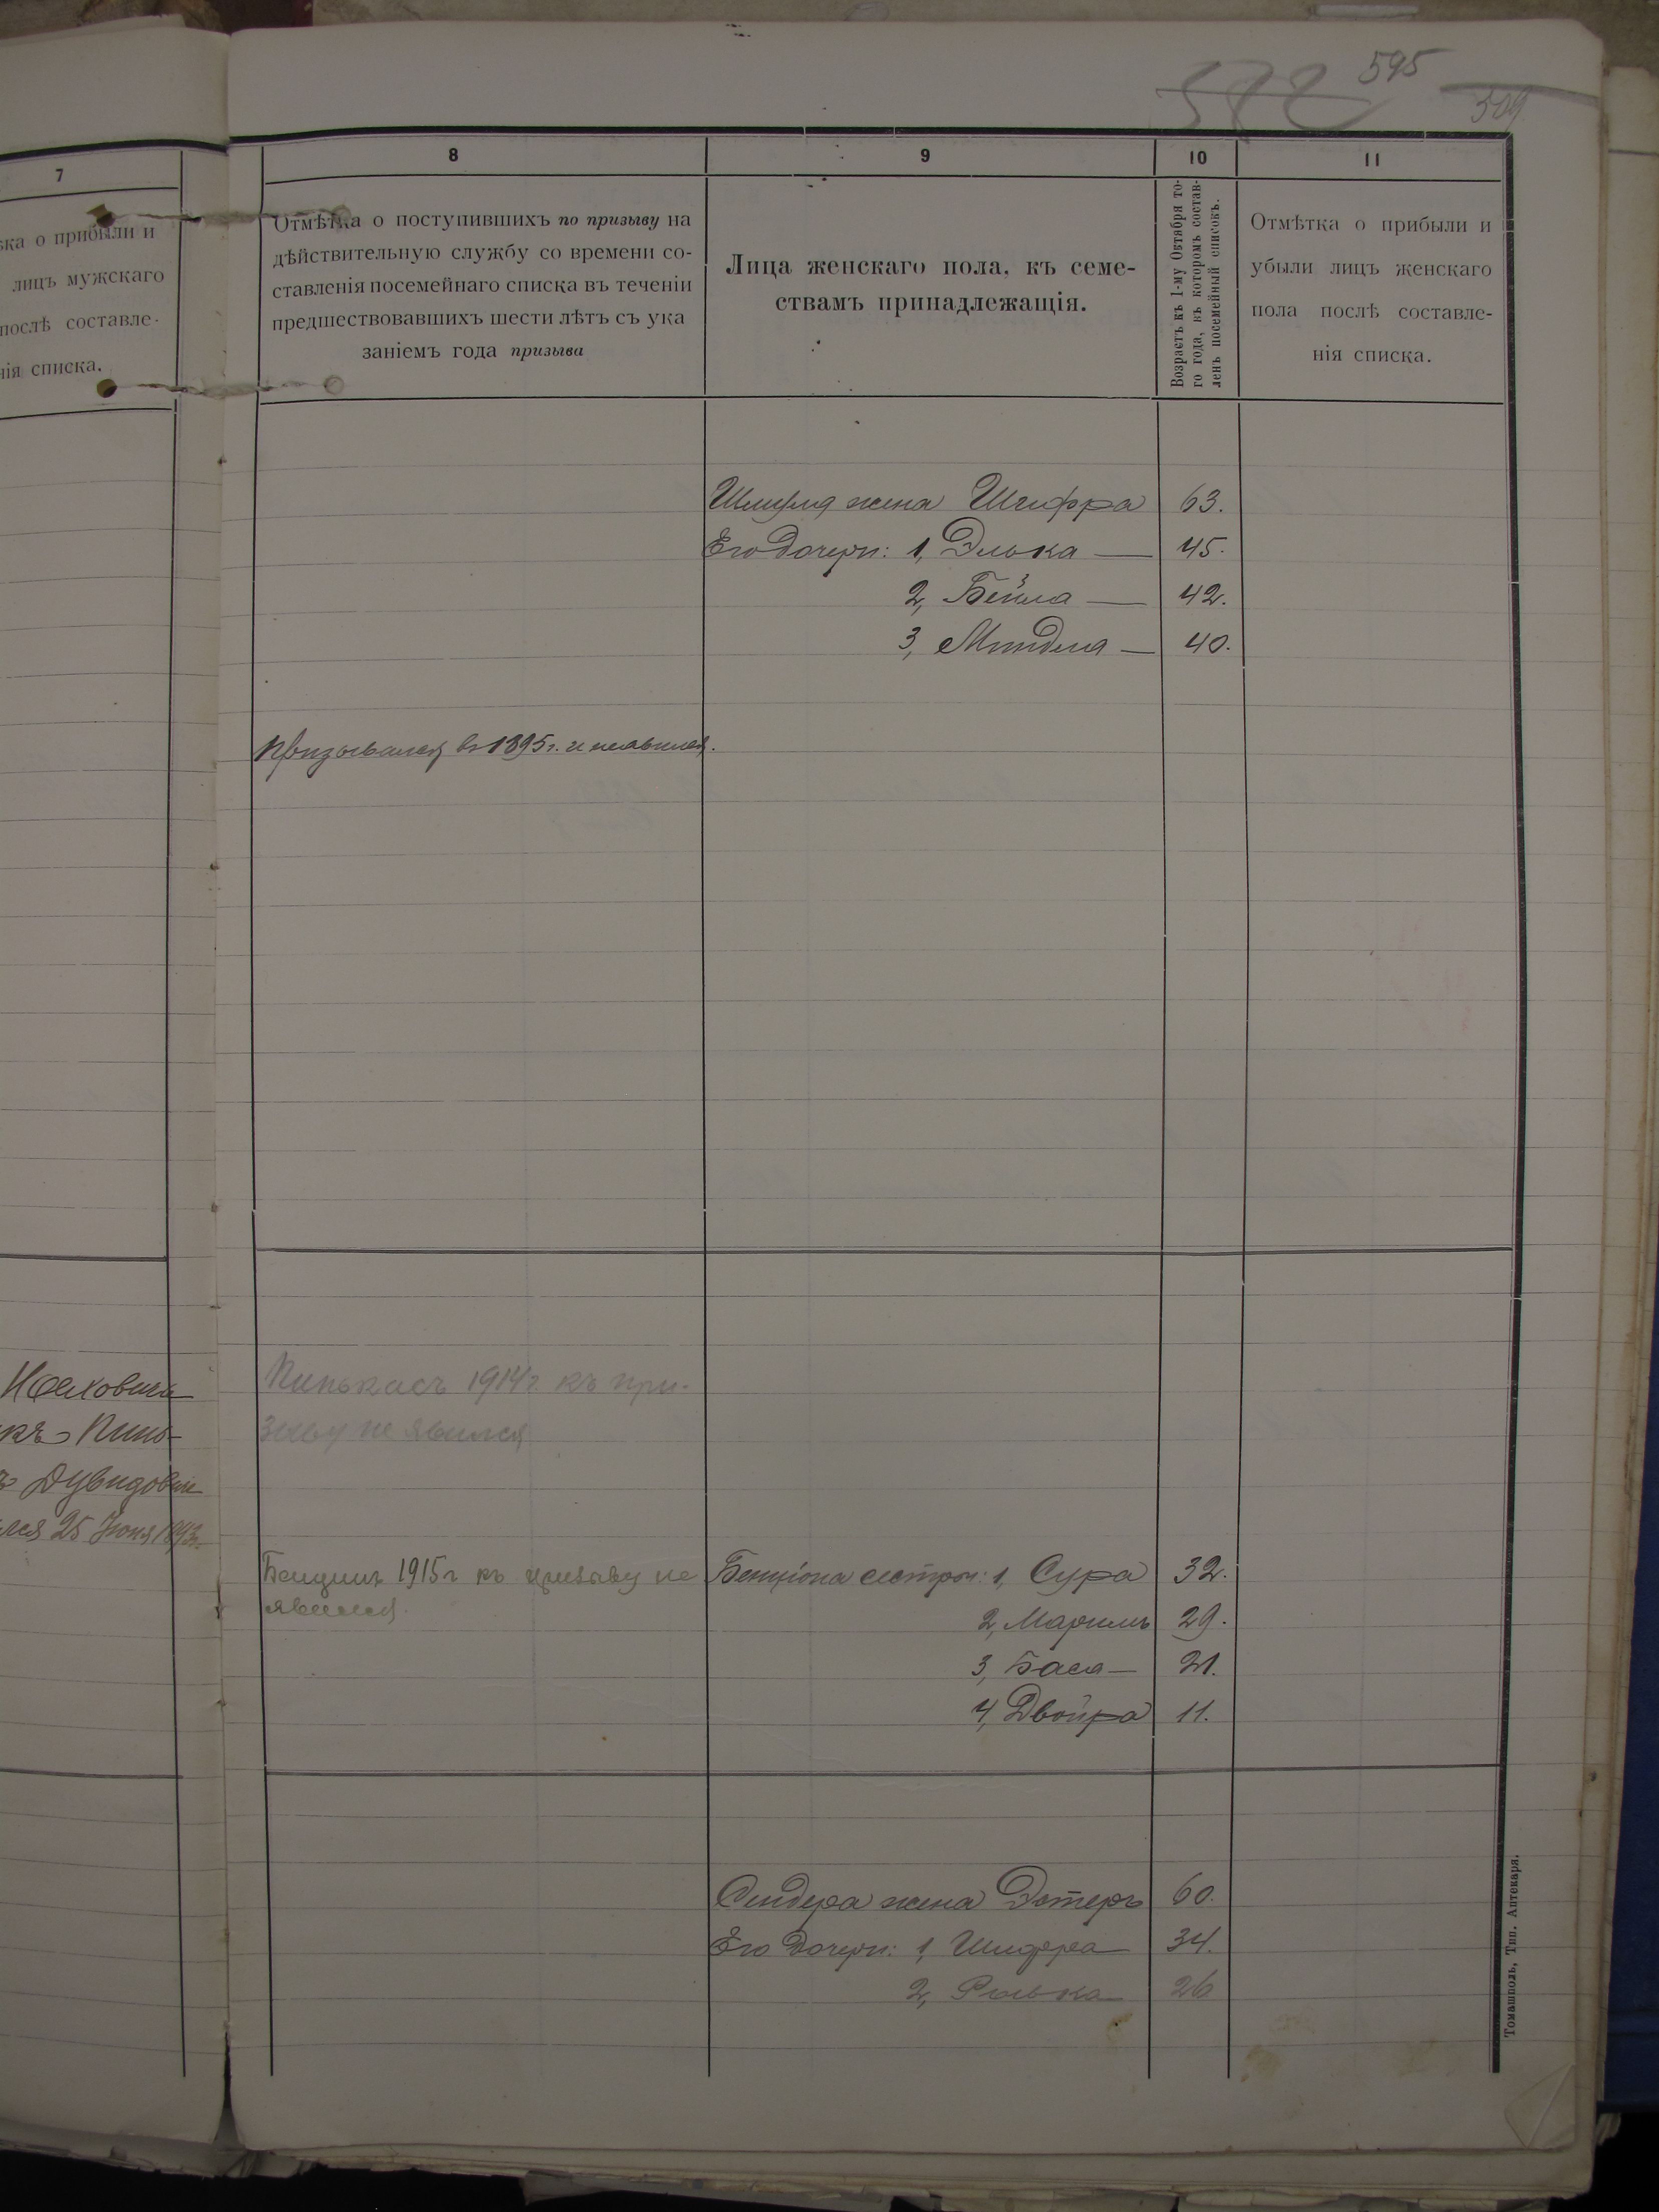 595
582
509
7
8
9
10
11
ка о прибыли и
лицъ мужскаго
послѣ составле-
нія списка.
Отмѣтка о поступившихъ по призыву на
дѣйствительную службу со времени со-
ставленія посемейнаго списка въ теченіи
предшествовавшихъ шести лѣтъ съ ука
заніемъ года призыва
Лица женскаго пола, къ семе-
ствамъ принадлежащія.
Возрастъ къ 1-му Октября то-
го года, въ которомъ состав-
ленъ посемейный списокъ.
Отмѣтка о прибыли и
убыли лицъ женскаго
пола послѣ составле-
нія списка.
Шмуля жена Шифра 63.
Его дочери: 1, Элька — 45.
2, Бейла — 42.
3, Миндля — 40.
Призывался въ 1895 г. и неявился.
Пинькасъ 1914 г. къ при-
зыву не явился
Иосиовича
къ Пинь-
Дувидович
лся 25 Іюня 1893г.
Бенціонъ 1915 г къ призыву не
явился.
Бенціона сестры: 1, Сура 32.
2, Маримъ 29.
3, Бася — 21.
4, Двойра 11.
Сендера жена Эстеръ 60.
Его дочери: 1, Шифра 34.
2, Рывка 26
Томашполь, Тип. Аптекаря.